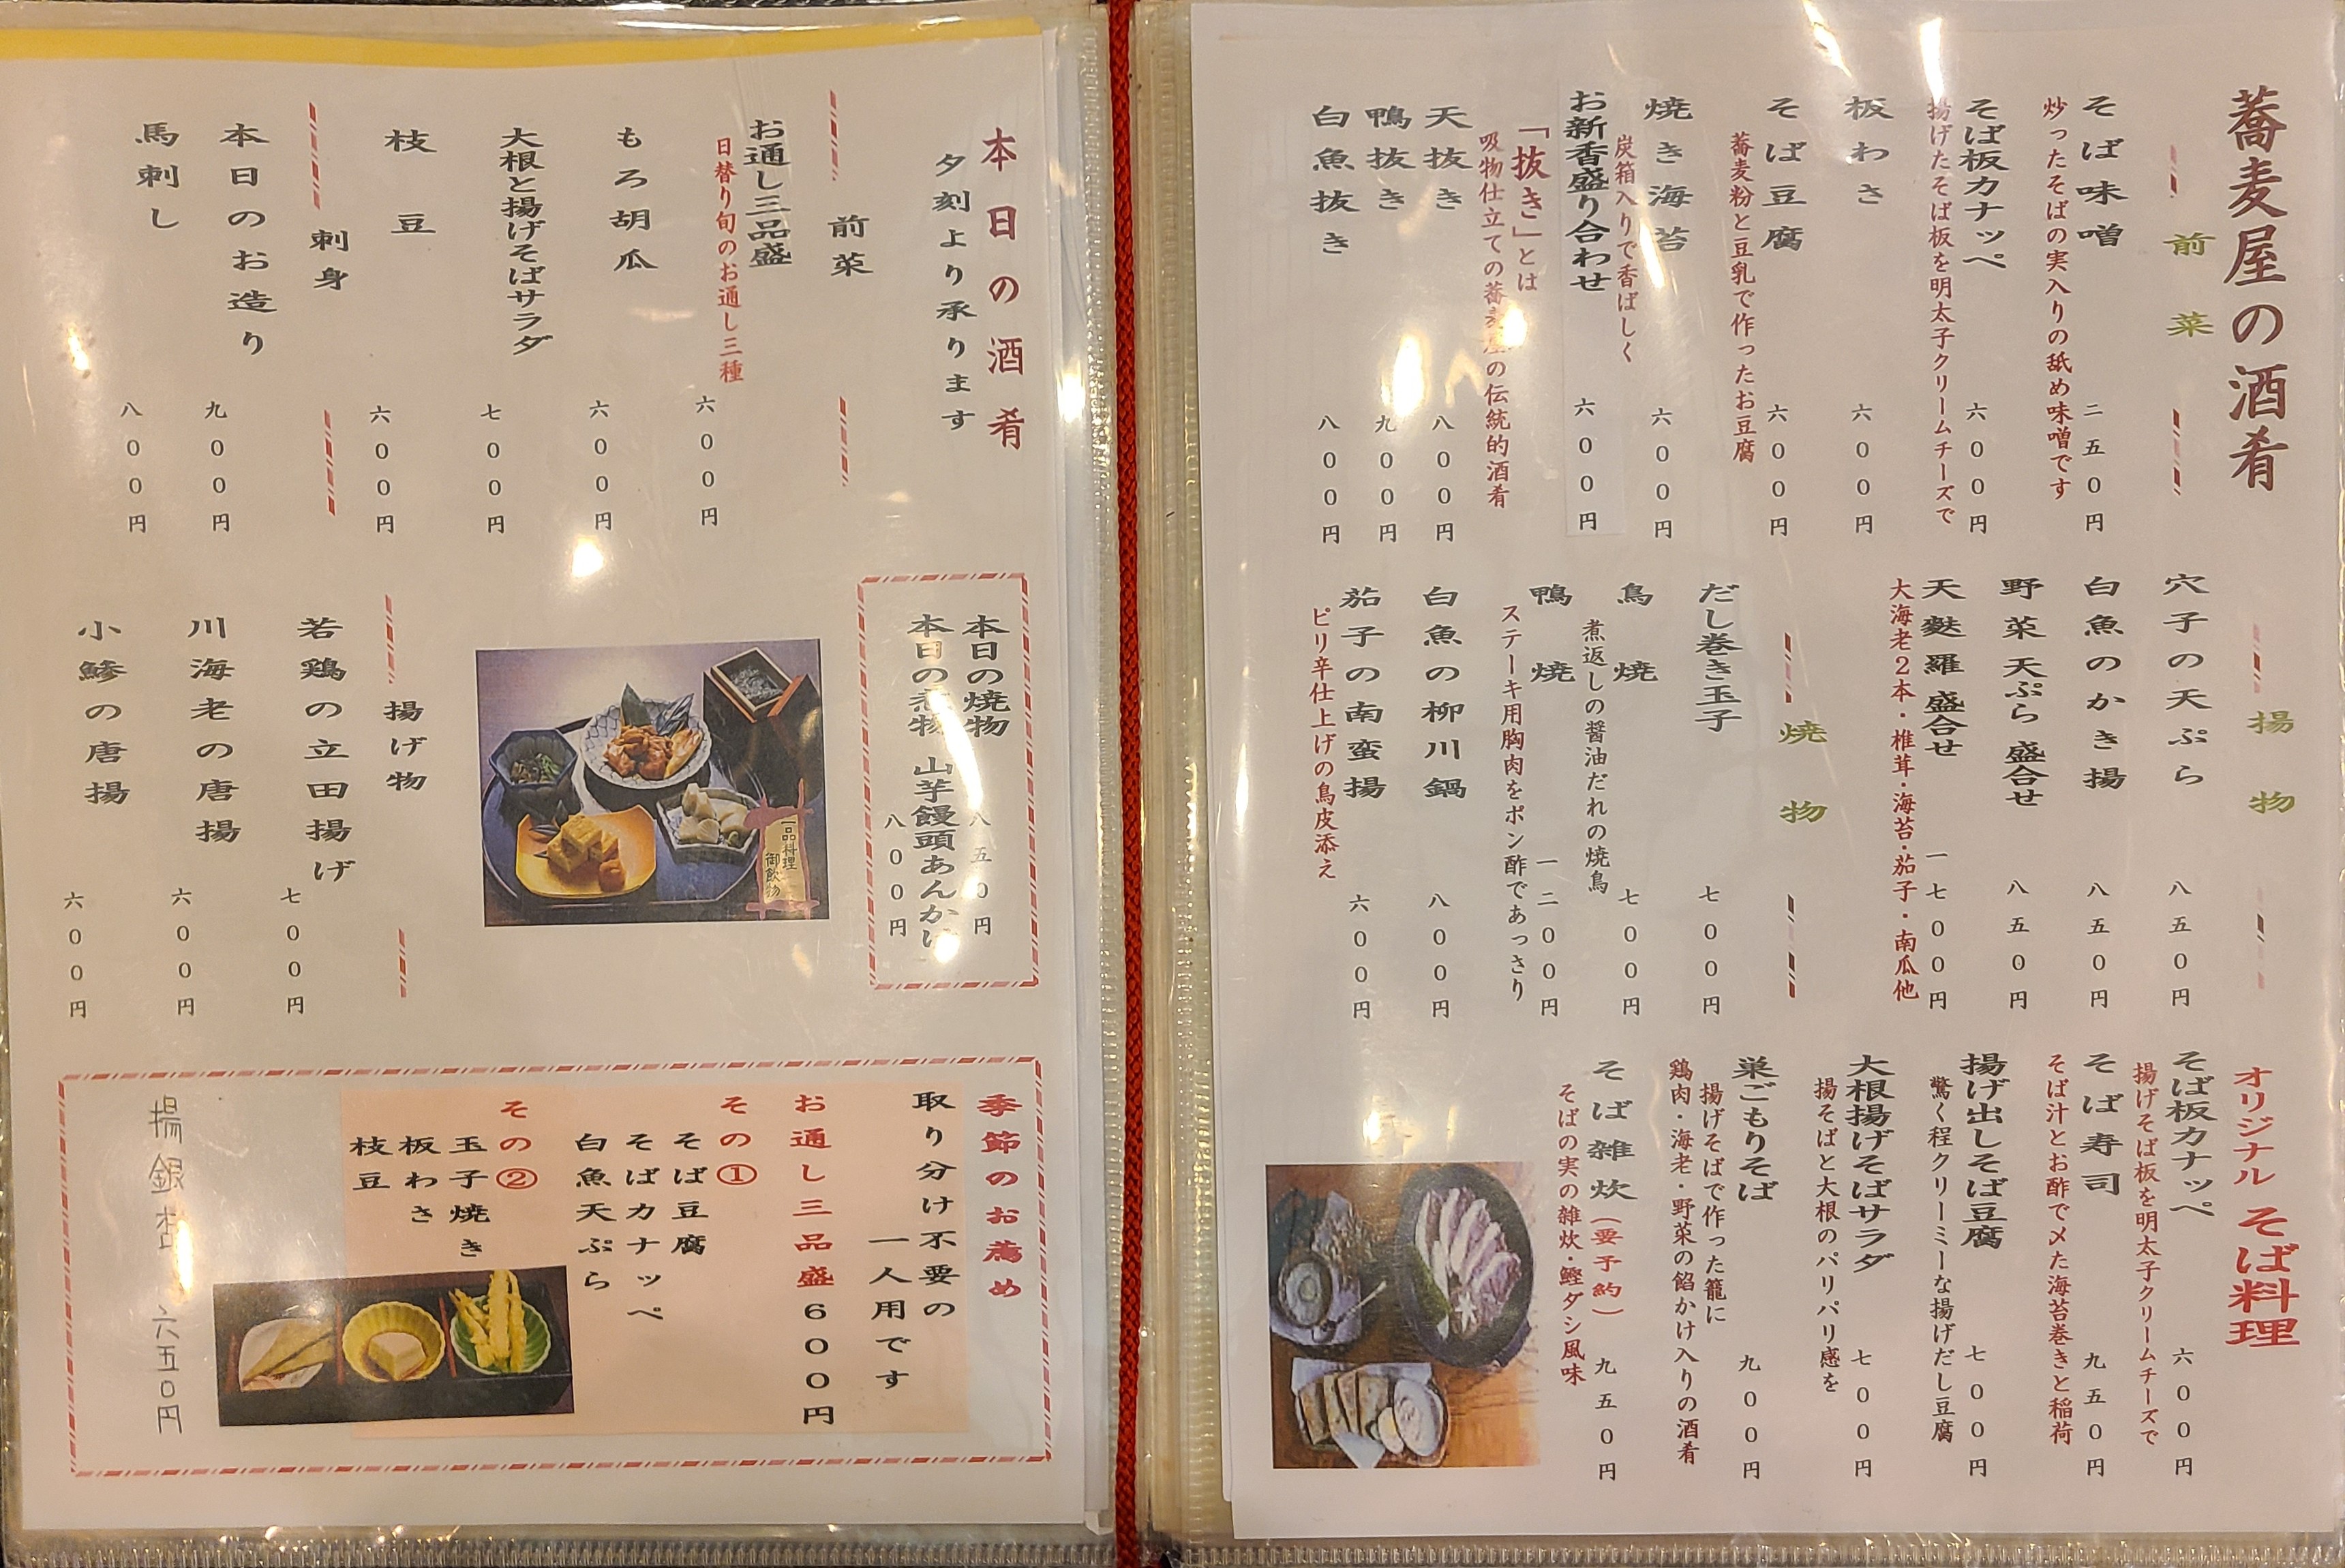 蕎麦屋の酒肴
前菜
そば味噌
二五０円
炒ったそばの実入りの舐め味噌です
そば板カナッペ
六００円
揚げたそば板を明太子クリームチーズで
板わさ
六００円
そば豆腐
六００円
蕎麦粉と豆乳で作ったお豆腐
焼き海苔
六００円
炭箱入りで香ばしく
お新香盛り合わせ
六００円
「抜き」とは
吸物仕立ての蕎麦屋の伝統的酒肴
天抜き
八００円
鴨抜き
九００円
白魚抜き
八００円
揚物
穴子の天ぷら
八五０円
白魚のかき揚
八五０円
野菜天ぷら盛合せ
八五０円
天麩羅盛合せ
一七００円
大海老２本・椎茸・海苔・茄子・南瓜他
焼物
だし巻き玉子
七００円
鳥焼
七００円
煮返しの醤油だれの焼鳥
鴨焼
一二００円
ステーキ用胸肉をポン酢であっさり
白魚の柳川鍋
八００円
茄子の南蛮揚
六００円
ピリ辛仕上げの鳥皮添え
オリジナルそば料理
そば板カナッペ
六００円
揚げそば板を明太子クリームチーズで
そば寿司
九五０円
そば汁とお酢で〆た海苔巻きと稲荷
揚げ出しそば豆腐
七００円
驚く程クリーミーな揚げだし豆腐
大根揚げそばサラダ
七００円
揚そばと大根のパリパリ感を
巣ごもりそば
九００円
揚げそばで作った籠に
鶏肉・海老・野菜の餡かけ入りの酒肴
そば雑炊（要予約）
九五０円
そばの実の雑炊・鰹ダシ風味
本日の酒肴
夕刻より承ります
前菜
お通し三品盛
六００円
日替り旬のお通し三種
もろ胡瓜
六００円
大根と揚げそばサラダ
七００円
枝豆
六００円
刺身
本日のお造り
九００円
馬刺し
八００円
本日の焼物
八五０円
本日の煮物 山芋饅頭あんかけ
八００円
一品料理
御飲物
揚げ物
若鶏の立田揚げ
七００円
川海老の唐揚
六００円
小鯵の唐揚
六００円
季節のお薦め
取り分け不要の
一人用です
お通し三品盛６００円
その①
そば豆腐
そばカナッペ
白魚天ぷら
その②
玉子焼き
板わさ
枝豆
揚銀杏 六五０円